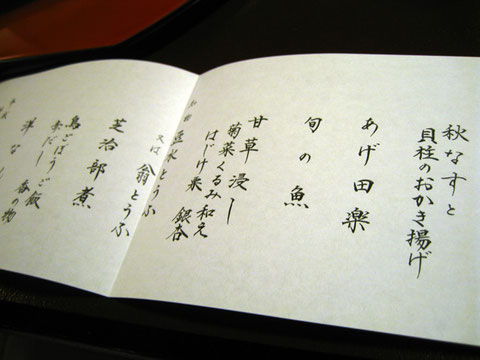 秋なすと
貝柱のおかき揚げ
あげ田楽
旬の魚
甘草浸し
菊菜くるみ和え
はじけ栗 銀杏
水とうふ
又は 翁とうふ
芝治部煮
鳥ごぼうご飯
赤だし 香の物
洋なし